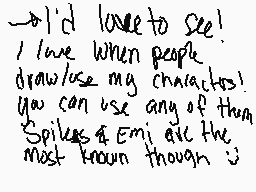 →I'd love to see!
I love when people
draw/use my characters!
you can use any of them
Spikes & Emi are the
most known though :)